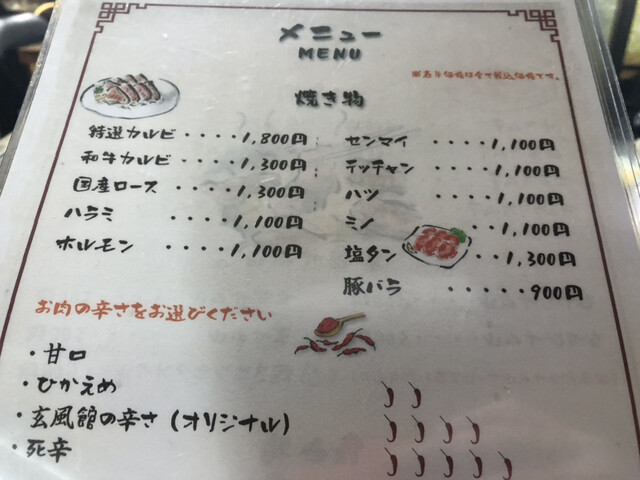 メニュー
MENU
※表示価格は全て税込価格です。
焼き物
特選カルビ ････1,800円
和牛カルビ ････1,300円
国産ロース ････1,300円
ハラミ ････1,100円
ホルモン ････1,100円
センマイ ････1,100円
テッチャン ････1,100円
ハツ ････1,100円
ミノ ････1,100円
塩タン ････1,300円
豚バラ ･････900円
お肉の辛さをお選びください
・甘口
・ひかえめ
・玄風館の辛さ (オリジナル)
・死辛